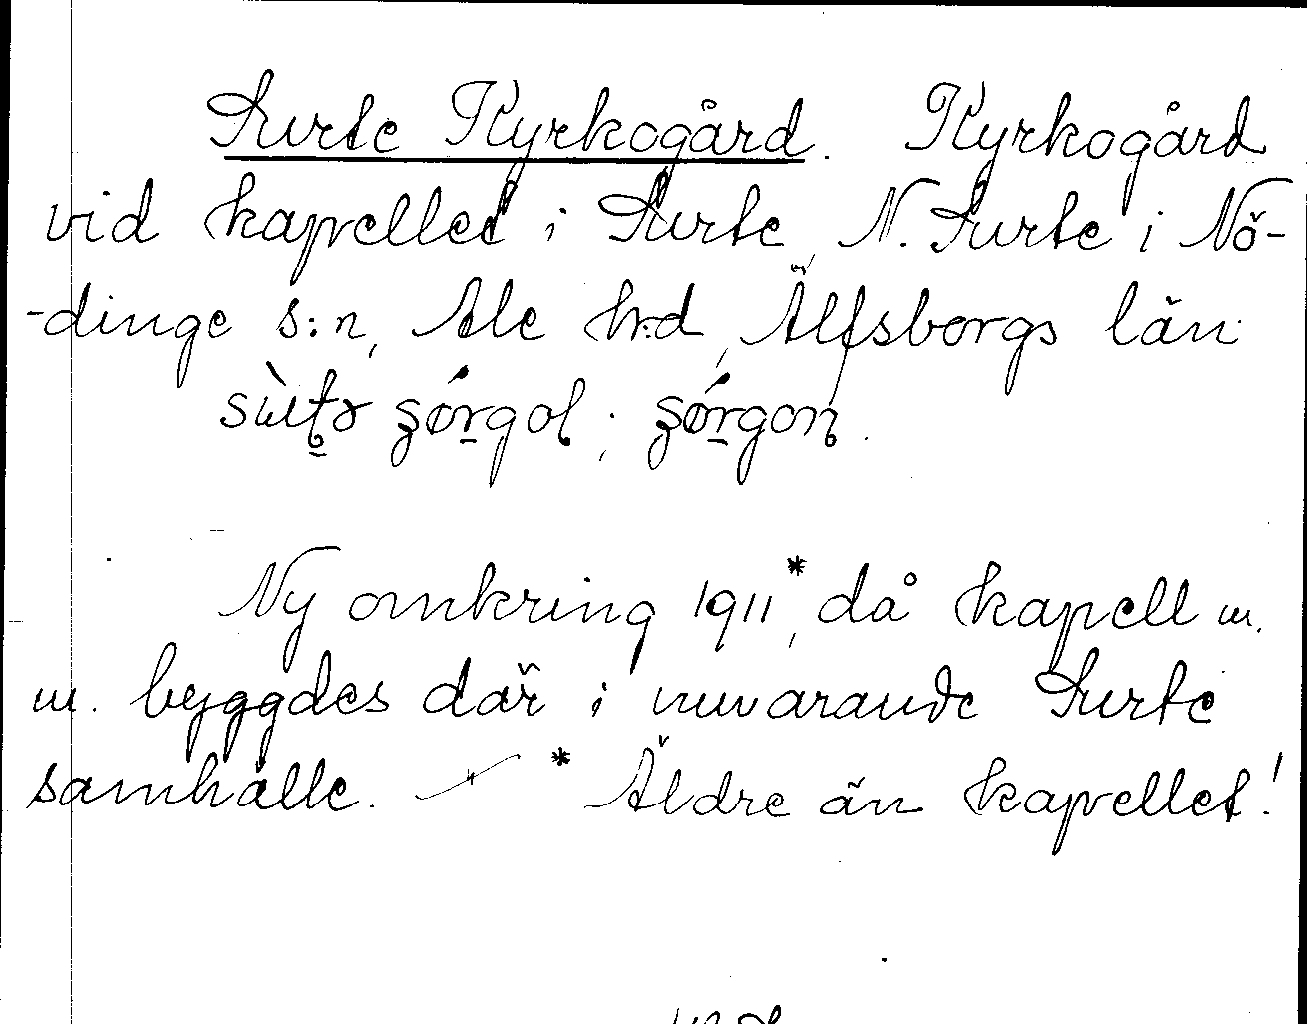 Surte Kyrkogård. Kyrkogård
vid kapellet i Surte, N. Surte i Nö-
-dinge s:n, Ale hrd, Älfsborgs län.
Ny omkring 1911*, då kapell m.
m. byggdes där i nuvarande Surte
samhälle. * Äldre än kapellet!